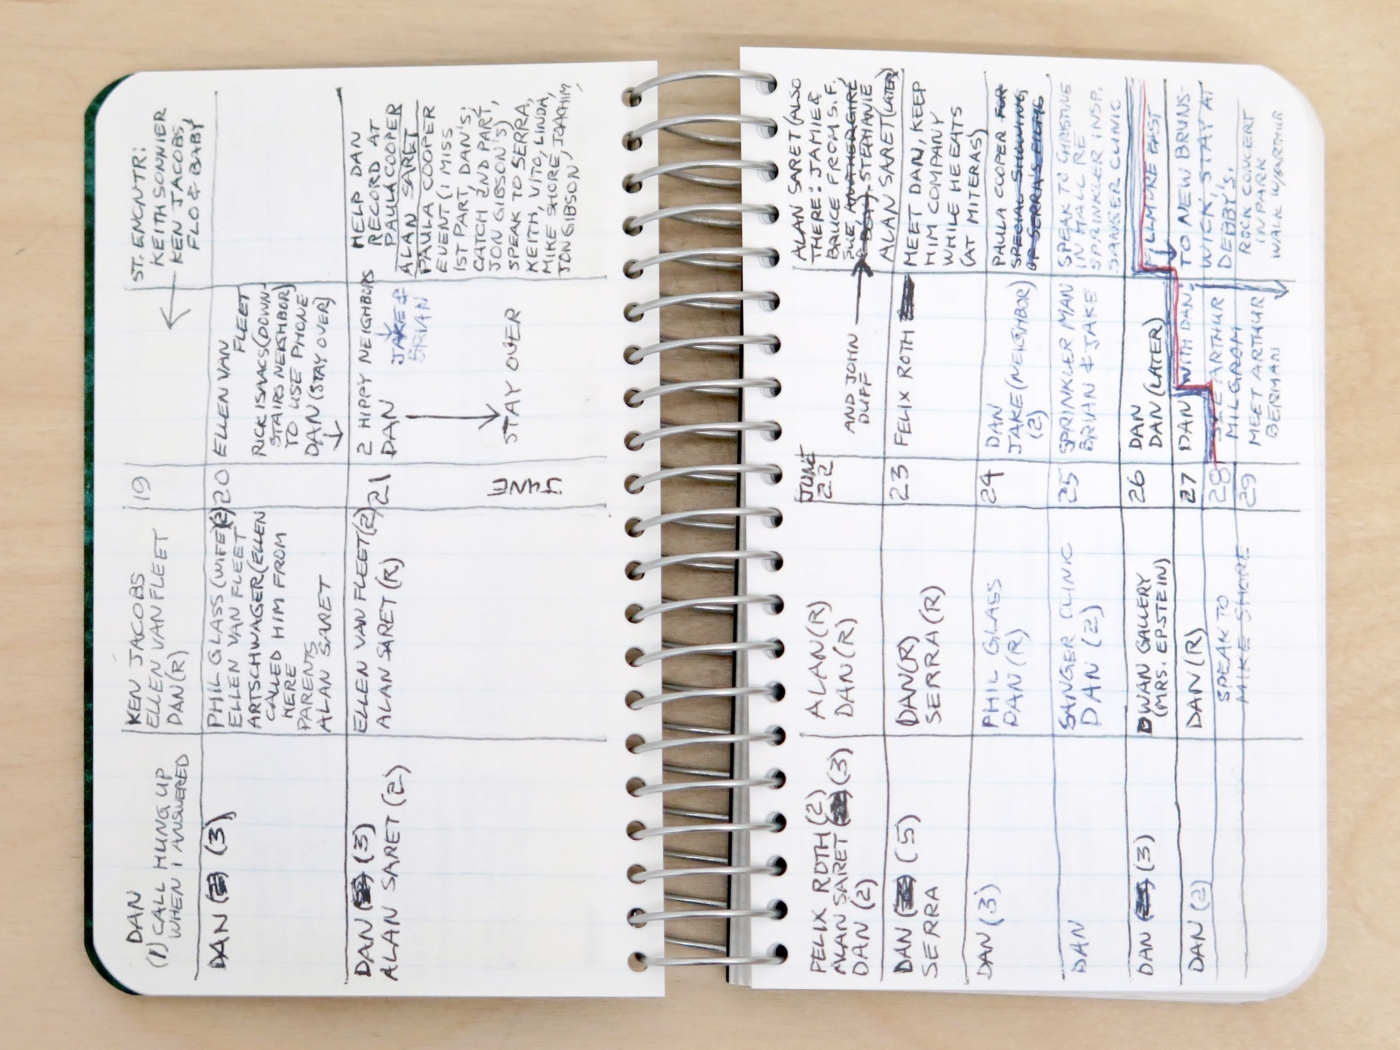 DAN
(1) CALL HUNG UP
WHEN I ANSWERED
KEN JACOBS
ELLEN VAN FLEET
DAN (R)
19
ST. ENCNTR:
KEITH SONNIER
KEN JACOBS,
FLO & BABY
DAN (3)
PHIL GLASS (WIFE)(2)
ELLEN VAN FLEET
ARTSCHWAGER (ELLEN
CALLED HIM FROM
HERE
PARENTS
ALAN SARET
20
ELLEN VAN
FLEET
RICK ISAACS (DOWN-
STAIRS NEIGHBOR)
TO USE PHONE
DAN (STAY OVER)
DAN (3)
ALAN SARET (2)
ELLEN VAN FLEET (2)
ALAN SARET (R)
21
2 HIPPY NEIGHBORS
JAKE &
BRIAN
DAN
STAY OVER
HELP DAN
RECORD AT
PAULA COOPER
ALAN SARET
PAULA COOPER
EVENT (I MISS
1ST PART, DAN'S;
CATCH 2ND PART,
JON GIBSON'S)
SPEAK TO SERRA,
KEITH, VITO, LINDA,
MIKE SHORE, JOACHIM,
JON GIBSON,
FELIX ROTH (2)
ALAN SARET (3)
DAN (2)
ALAN (R)
DAN (R)
JUNE
22
AND JOHN
DUFF
ALAN SARET (ALSO
THERE: JAMIE &
BRUCE FROM S.F.,
STEPHANIE
ALAN SARET (LATER)
DAN (5)
SERRA
DAN (R)
SERRA (R)
23
FELIX ROTH
MEET DAN, KEEP
HIM COMPANY
WHILE HE EATS
(AT MITERAS)
DAN (3)
PHIL GLASS
DAN (R)
24
DAN
JAKE (NEIGHBOR)
(2)
PAULA COOPER FOR
SPECIAL SHOWING,
OF SERRA'S
DAN
SANGER CLINIC
DAN (2)
25
SPRINKLER MAN
BRIAN & JAKE
SPEAK TO CHRISTINE
IN HALL RE
SPRINKLER INSP.
SANGER CLINIC
DAN (3)
DWAN GALLERY
(MRS. EPSTEIN)
26
DAN
DAN (LATER)
FILLMORE EAST
DAN (2)
DAN (R)
27
DAN
WITH DAN.
TO NEW BRUNS-
WICK. STAY AT
DEBBY'S.
SPEAK TO
MIKE SHORE
28
SEE ARTHUR
MILGRAM
ROCK CONCERT
IN PARK
WALK W/ARTHUR
29
MEET ARTHUR
BERMAN